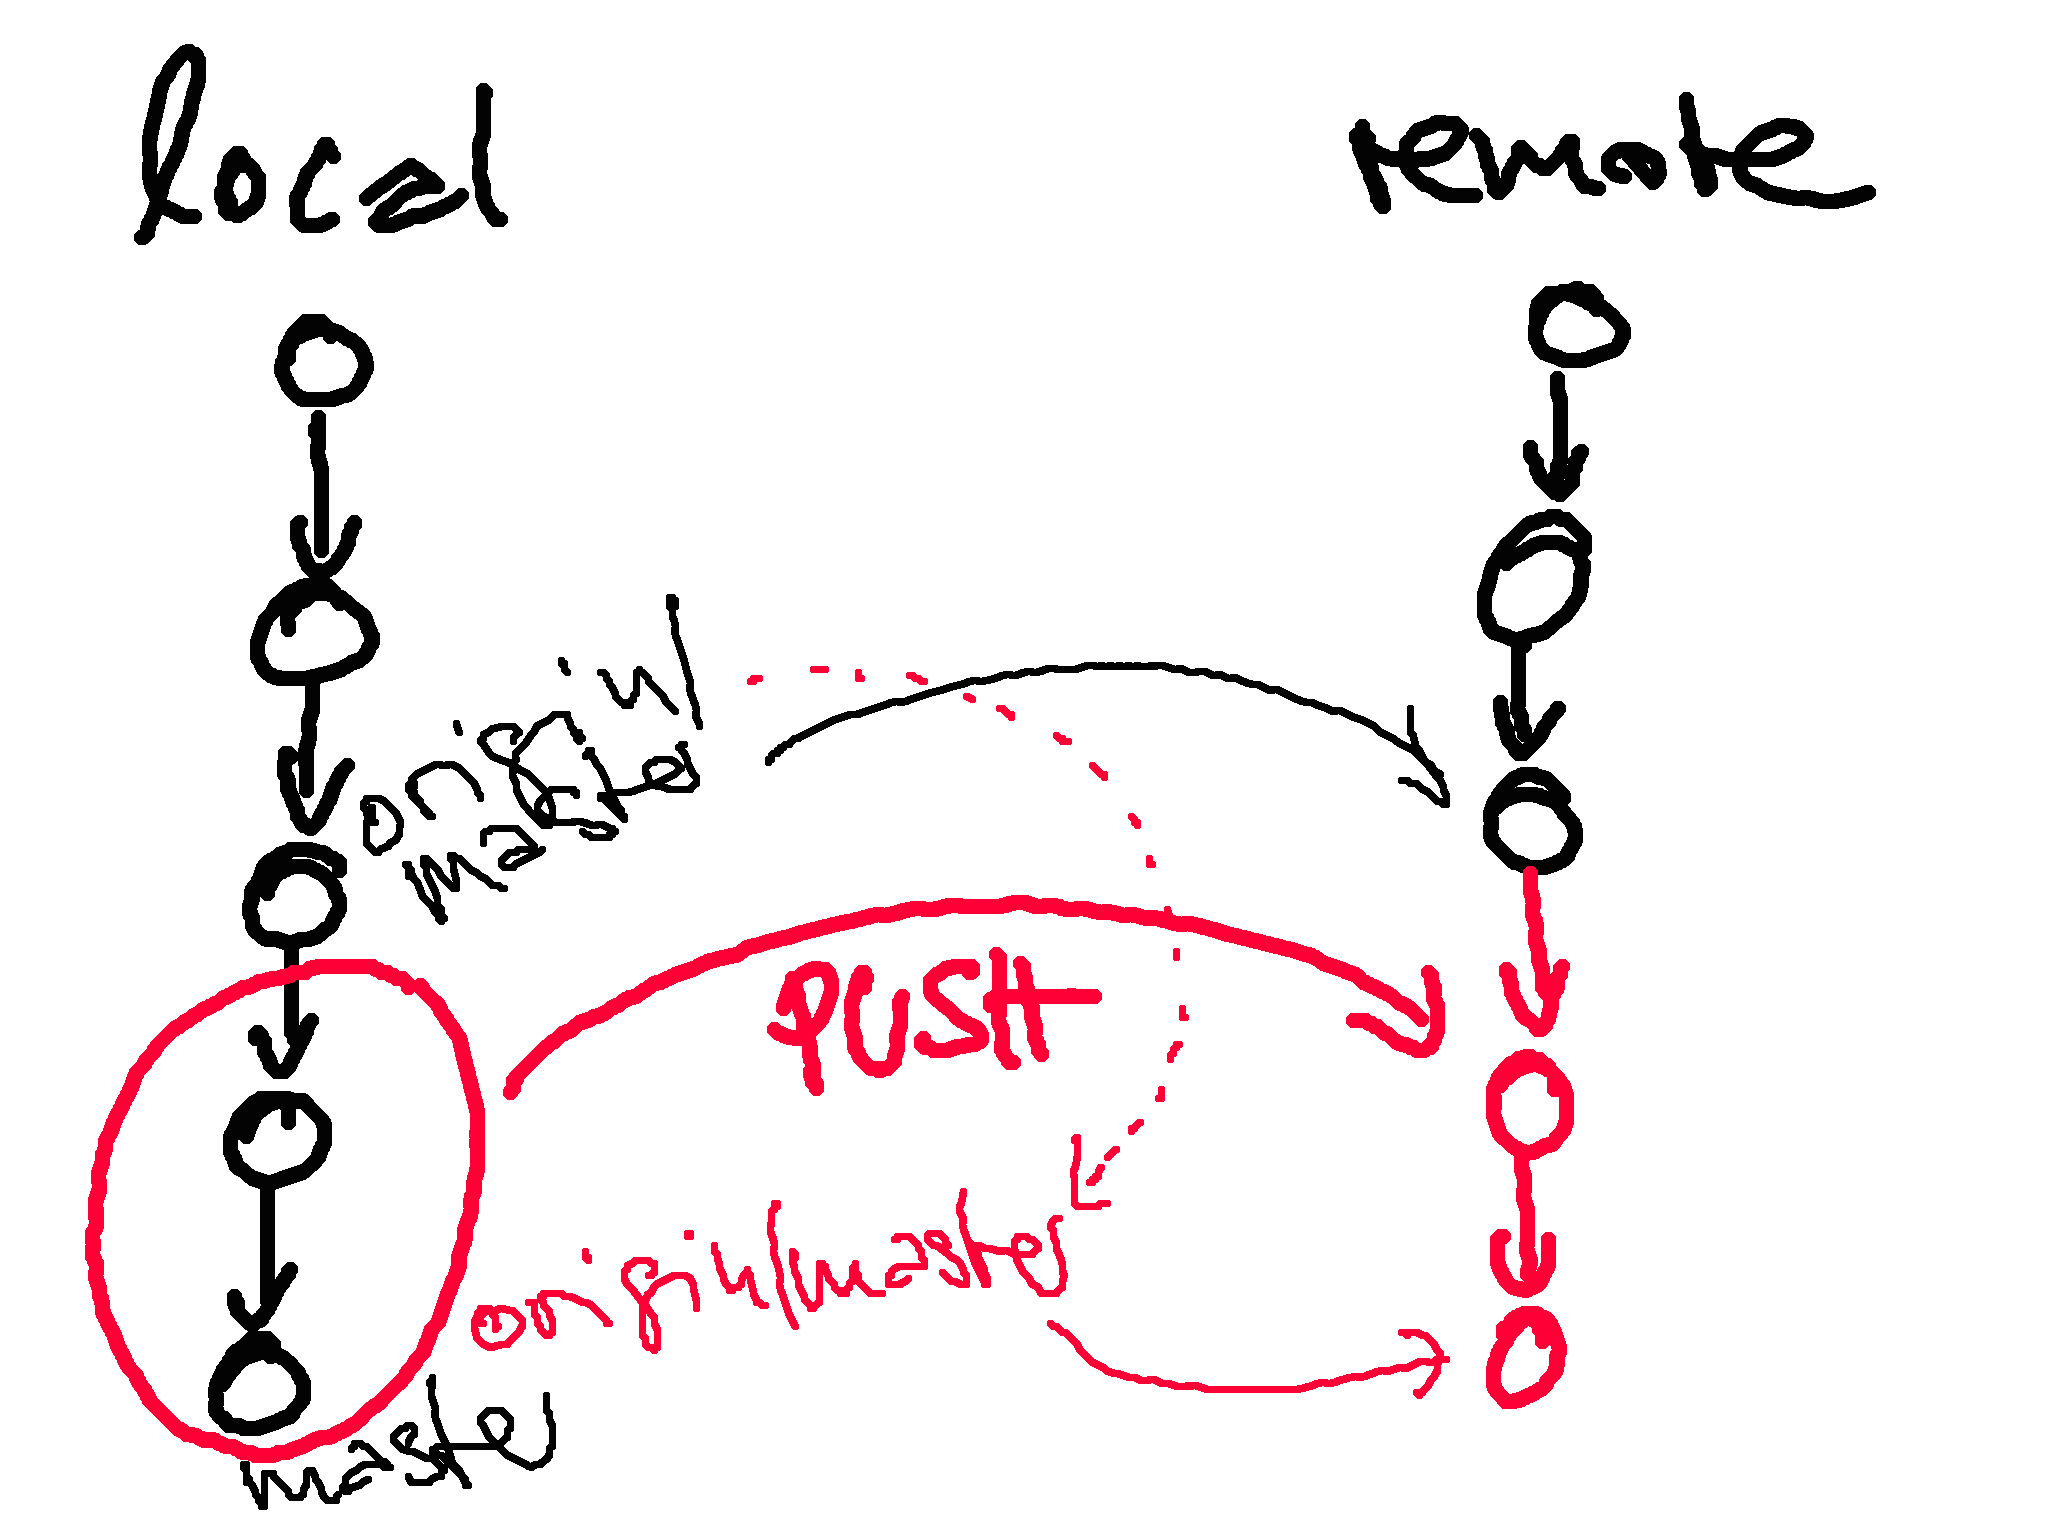 local
remote
origin/
master
PUSH
origin/master
master